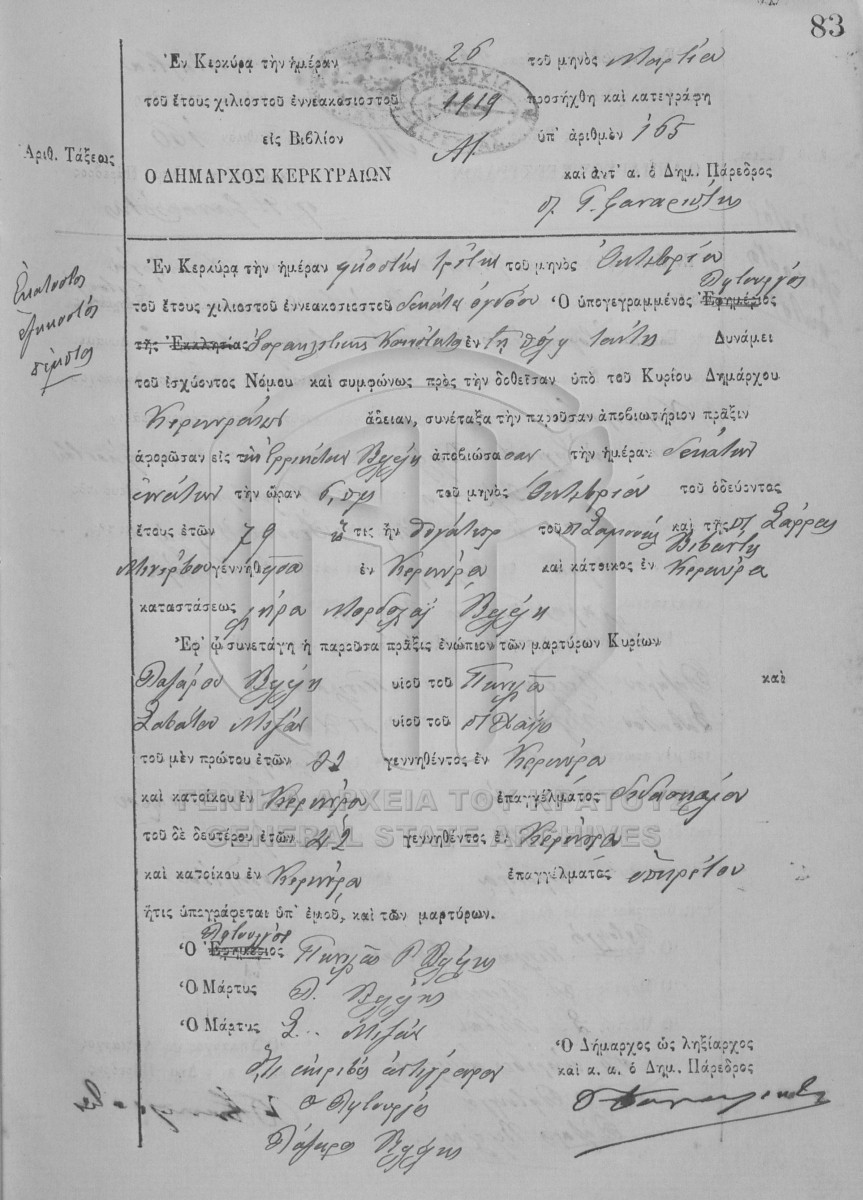 83
Ἐν Κερκύρᾳ τὴν ἡμέραν 26 τοῦ μηνὸς Μαρτίου
τοῦ ἔτους χιλιοστοῦ ἐννεακοσιοστοῦ 1919 προσήχθη καὶ κατεγράφη
εἰς Βιβλίον Α/ ὑπ' ἀριθμὸν 165
Ἀριθ. Τάξεως
Ο ΔΗΜΑΡΧΟΣ ΚΕΡΚΥΡΑΙΩΝ καὶ ἀντ' α. ὁ Δημ. Πάρεδρος
Ἑκατοστὸς
ἑξηκοστὸς
πέμπτος
Ἐν Κερκύρᾳ τὴν ἡμέραν εἰκοστὴν τρίτην τοῦ μηνὸς Ὀκτωβρίου
Λειτουργὸς
τοῦ ἔτους χιλιοστοῦ ἐννεακοσιοστοῦ δεκάτου ὀγδόου Ὁ ὑπογεγραμμένος Ἐφημέριος
τῆς Ἐκκλησίας Ἰσραηλιτικῆς Κοινότητος ἐν τῇ πόλει ταύτῃ Δυνάμει
τοῦ ἰσχύοντος Νόμου καὶ συμφώνως πρὸς τὴν δοθεῖσαν ὑπὸ τοῦ Κυρίου Δημάρχου
Κερκυραίων ἄδειαν, συνέταξα τὴν παροῦσαν ἀποβιωτήριον πρᾶξιν
ἀφορῶσαν εἰς τὴν Ἐρρικέταν Βελέλη ἀποβιώσασαν τὴν ἡμέραν δεκάτην
ἐνάτην τὴν ὥραν 6, πμ τοῦ μηνὸς Ὀκτωβρίου τοῦ ὁδεύοντος
ἔτους ἐτῶν 79 ἥτις ἦν θυγάτηρ τοῦ π Σαμουὴλ καὶ τῆς π Σάρρας
Βιβάντε
γεννηθεῖσα ἐν Κερκύρᾳ καὶ κάτοικος ἐν Κερκύρᾳ
καταστάσεως χήρα Μορδοχάϊ Βελέλη
Ἐφ' ᾧ συνετάγη ἡ παροῦσα πρᾶξις ἐνώπιον τῶν μαρτύρων Κυρίων
Λαζάρου Βελέλη υἱοῦ τοῦ καὶ
Σαβάτου Μιζὰν υἱοῦ τοῦ π Χαΐμ
τοῦ μὲν πρώτου ἐτῶν γεννηθέντος ἐν Κερκύρᾳ
καὶ κατοίκου ἐν Κερκύρᾳ ἐπαγγέλματος διδασκάλου
τοῦ δὲ δευτέρου ἐτῶν 42 γεννηθέντος ἐν Κερκύρᾳ
καὶ κατοίκου ἐν Κερκύρᾳ ἐπαγγέλματος ὑπηρέτου
ἥτις ὑπογράφεται ὑπ' ἐμοῦ, καὶ τῶν μαρτύρων.
Λειτουργὸς
Ὁ Ἐφημέριος Βελέλης
Ὁ Μάρτυς Λ. Βελέλης
Ὁ Μάρτυς Σ. Μιζὰν
Ὅτι ἀκριβὲς ἀντίγραφον
Ὁ Λειτουργὸς
Λάζαρος Βελέλης
Ὁ Δήμαρχος ὡς ληξίαρχος
καὶ α. α. ὁ Δημ. Πάρεδρος
ΓΕΝΙΚΑ ΑΡΧΕΙΑ ΤΟΥ ΚΡΑΤΟΥΣ
GENERAL STATE ARCHIVES